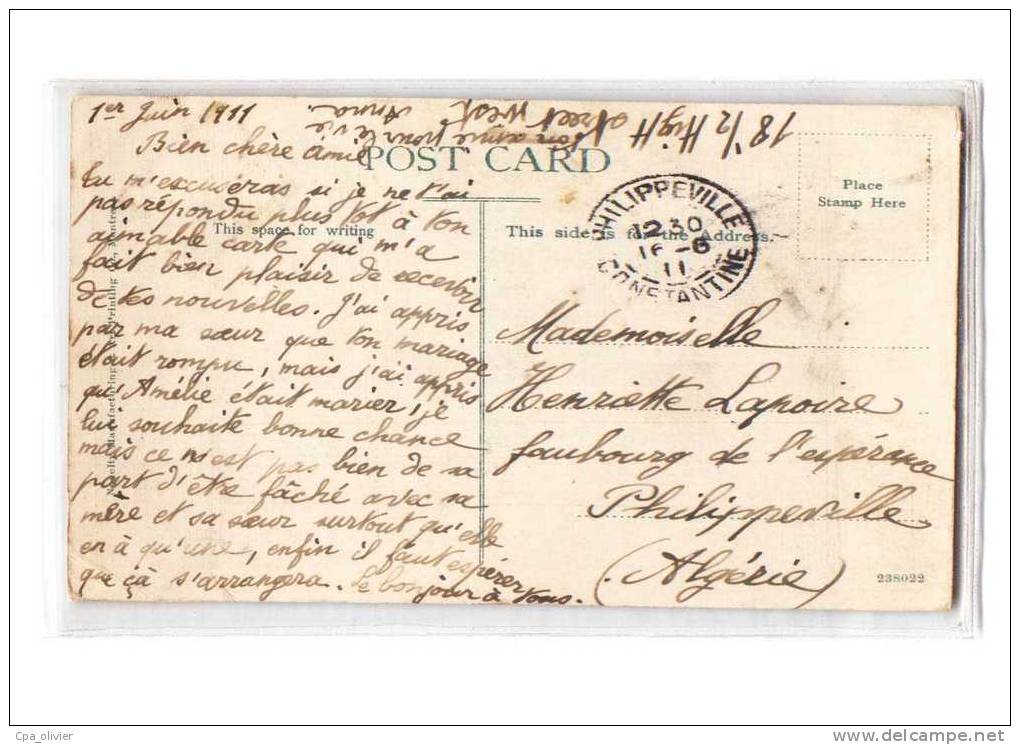 1er Juin 1911
Bien chère amie
tu m'escuseras si je ne t'ai
pas répondu plus tôt à ton
aimable carte qui m'a
fait bien plaisir de recevoir
de tes nouvelles. J'ai appris
par ma sœur que ton mariage
était rompu, mais j'ai appris
qu'Amélie était marier, je
lui souhaite bonne chance
mais ce n'est pas bien de sa
part d'être fâché avec sa
mère et sa sœur surtout qu'elle
en à qu'une, enfin il faut espérer
que çà s'arrangera. Le bonjour à tous.
amie pour la vie
Anna
18 1/2 High
street West
POST CARD
This space for writing
This side is for the Address.
Place
Stamp Here
PHILIPPEVILLE
12 30
16 - 6
11
CONSTANTINE
Mademoiselle
Henriette Lapoire
faubourg de l'espérance
Philippeville
(Algérie)
238022
Cpa_olivier
www.delcampe.net